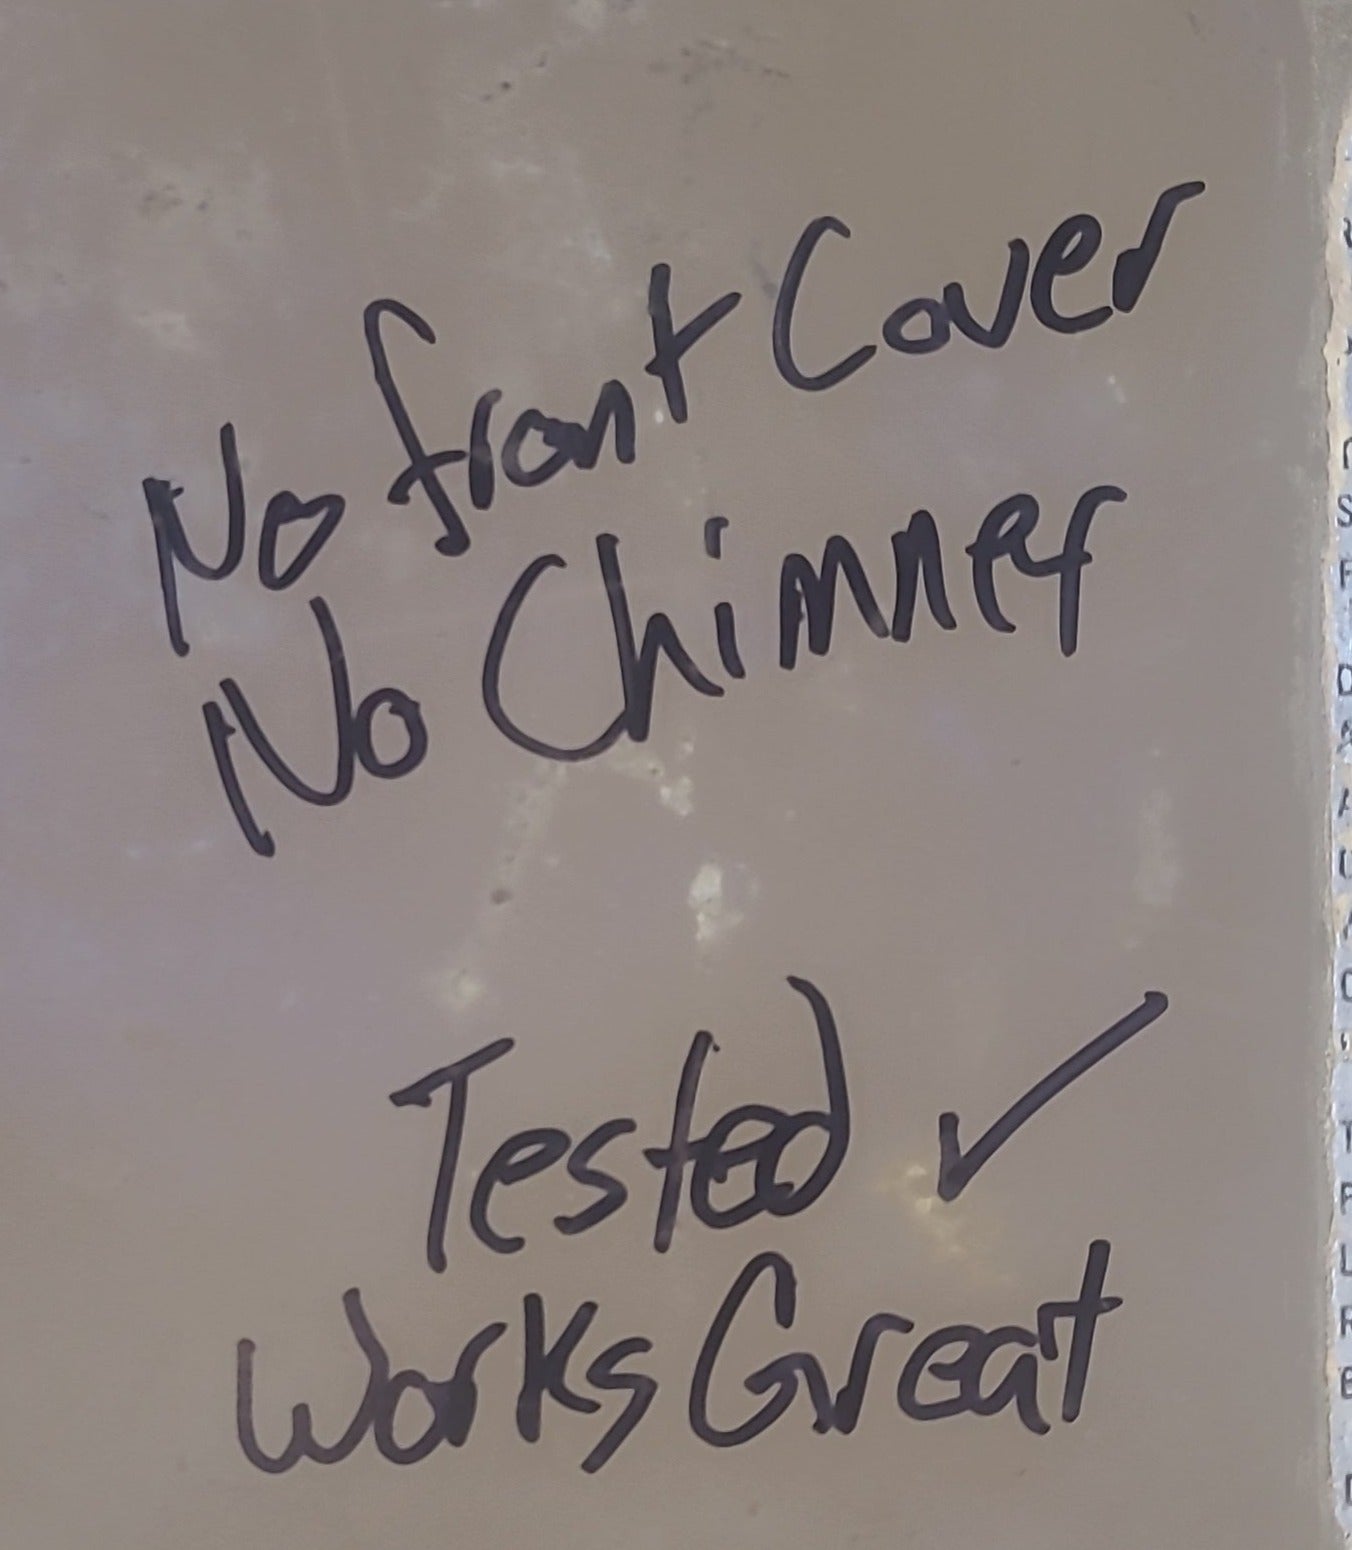 No front Cover
No Chimney
Tested ✓
Works Great